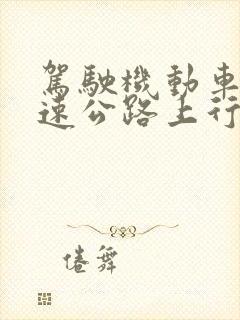 駕駛機動車
速公路上行
倦舞